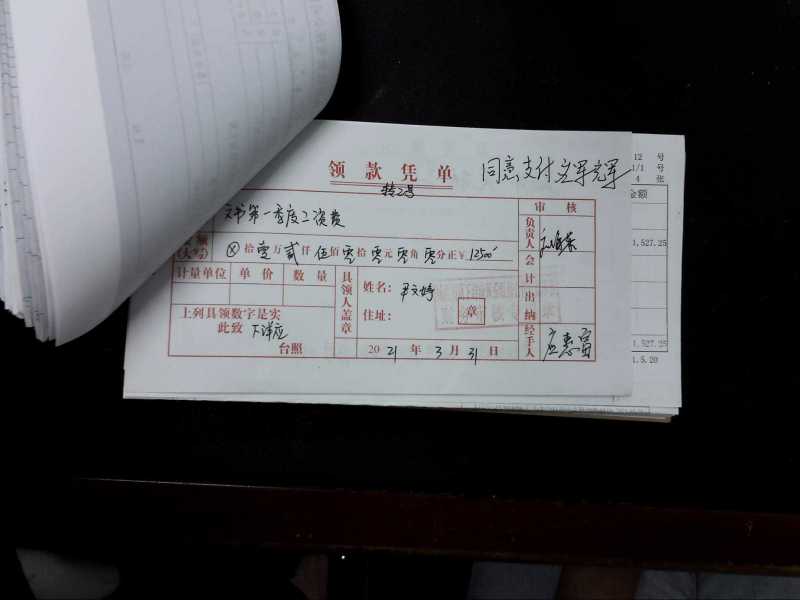 领款凭单
同意支付
转2号
文书第一季度工资费
审核
额
(大写)
ⓧ拾壹万贰仟伍佰零拾零元零角零分正¥12500
负责人
计量单位 单价 数量
会计
具领人盖章
姓名:尹文婷
住址:
章
出纳
上列具领数字是实
此致 下洋应
台照
2021年3月31日
经手人 应惠富
12 号
1/1 号
4 张
金额
,527.25
,527.25
1.5.20